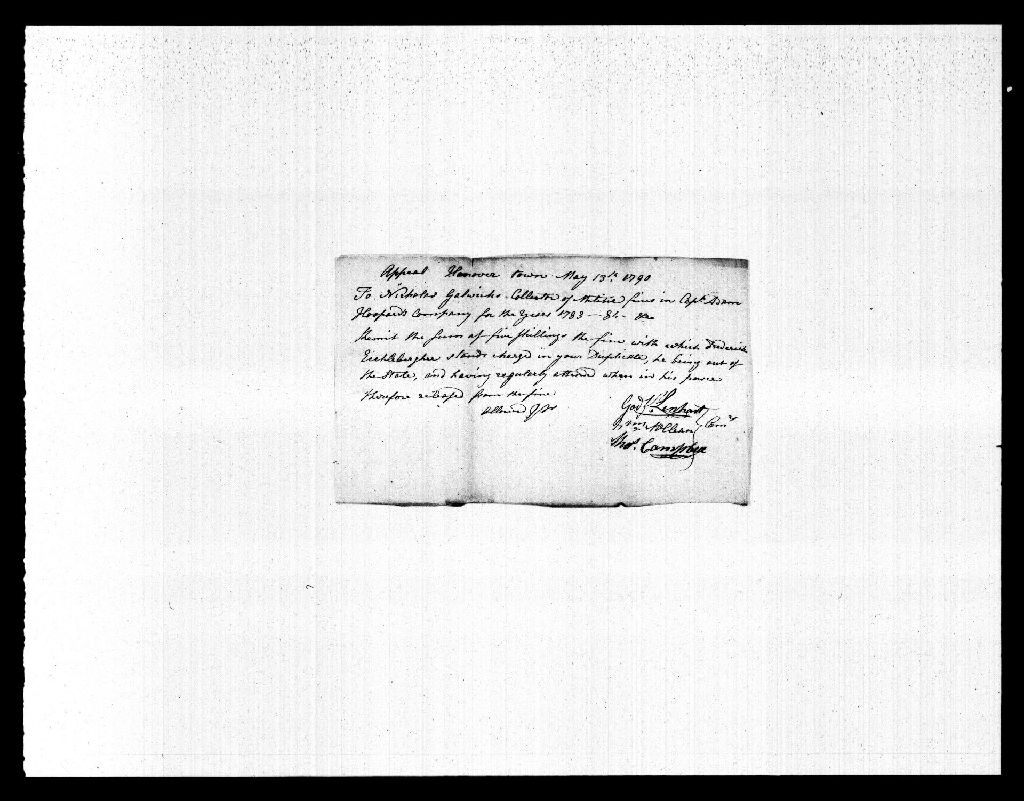 Appeal Hanover town May 13th 1790
To Nicholas Gelwicks Collector of Militia fines in Capt Adam
Hoopards Company for the Year 1783 - 84 - &c
Remit the sum of five Shillings the fine with which Frederick
Eichleberger stands charged in your Duplicate, he being out of
the State, and having regularly attend when in his
therefore released from the fine
Allowed
God Lenhart
Wm McClean Comrs
Thos. Campbell